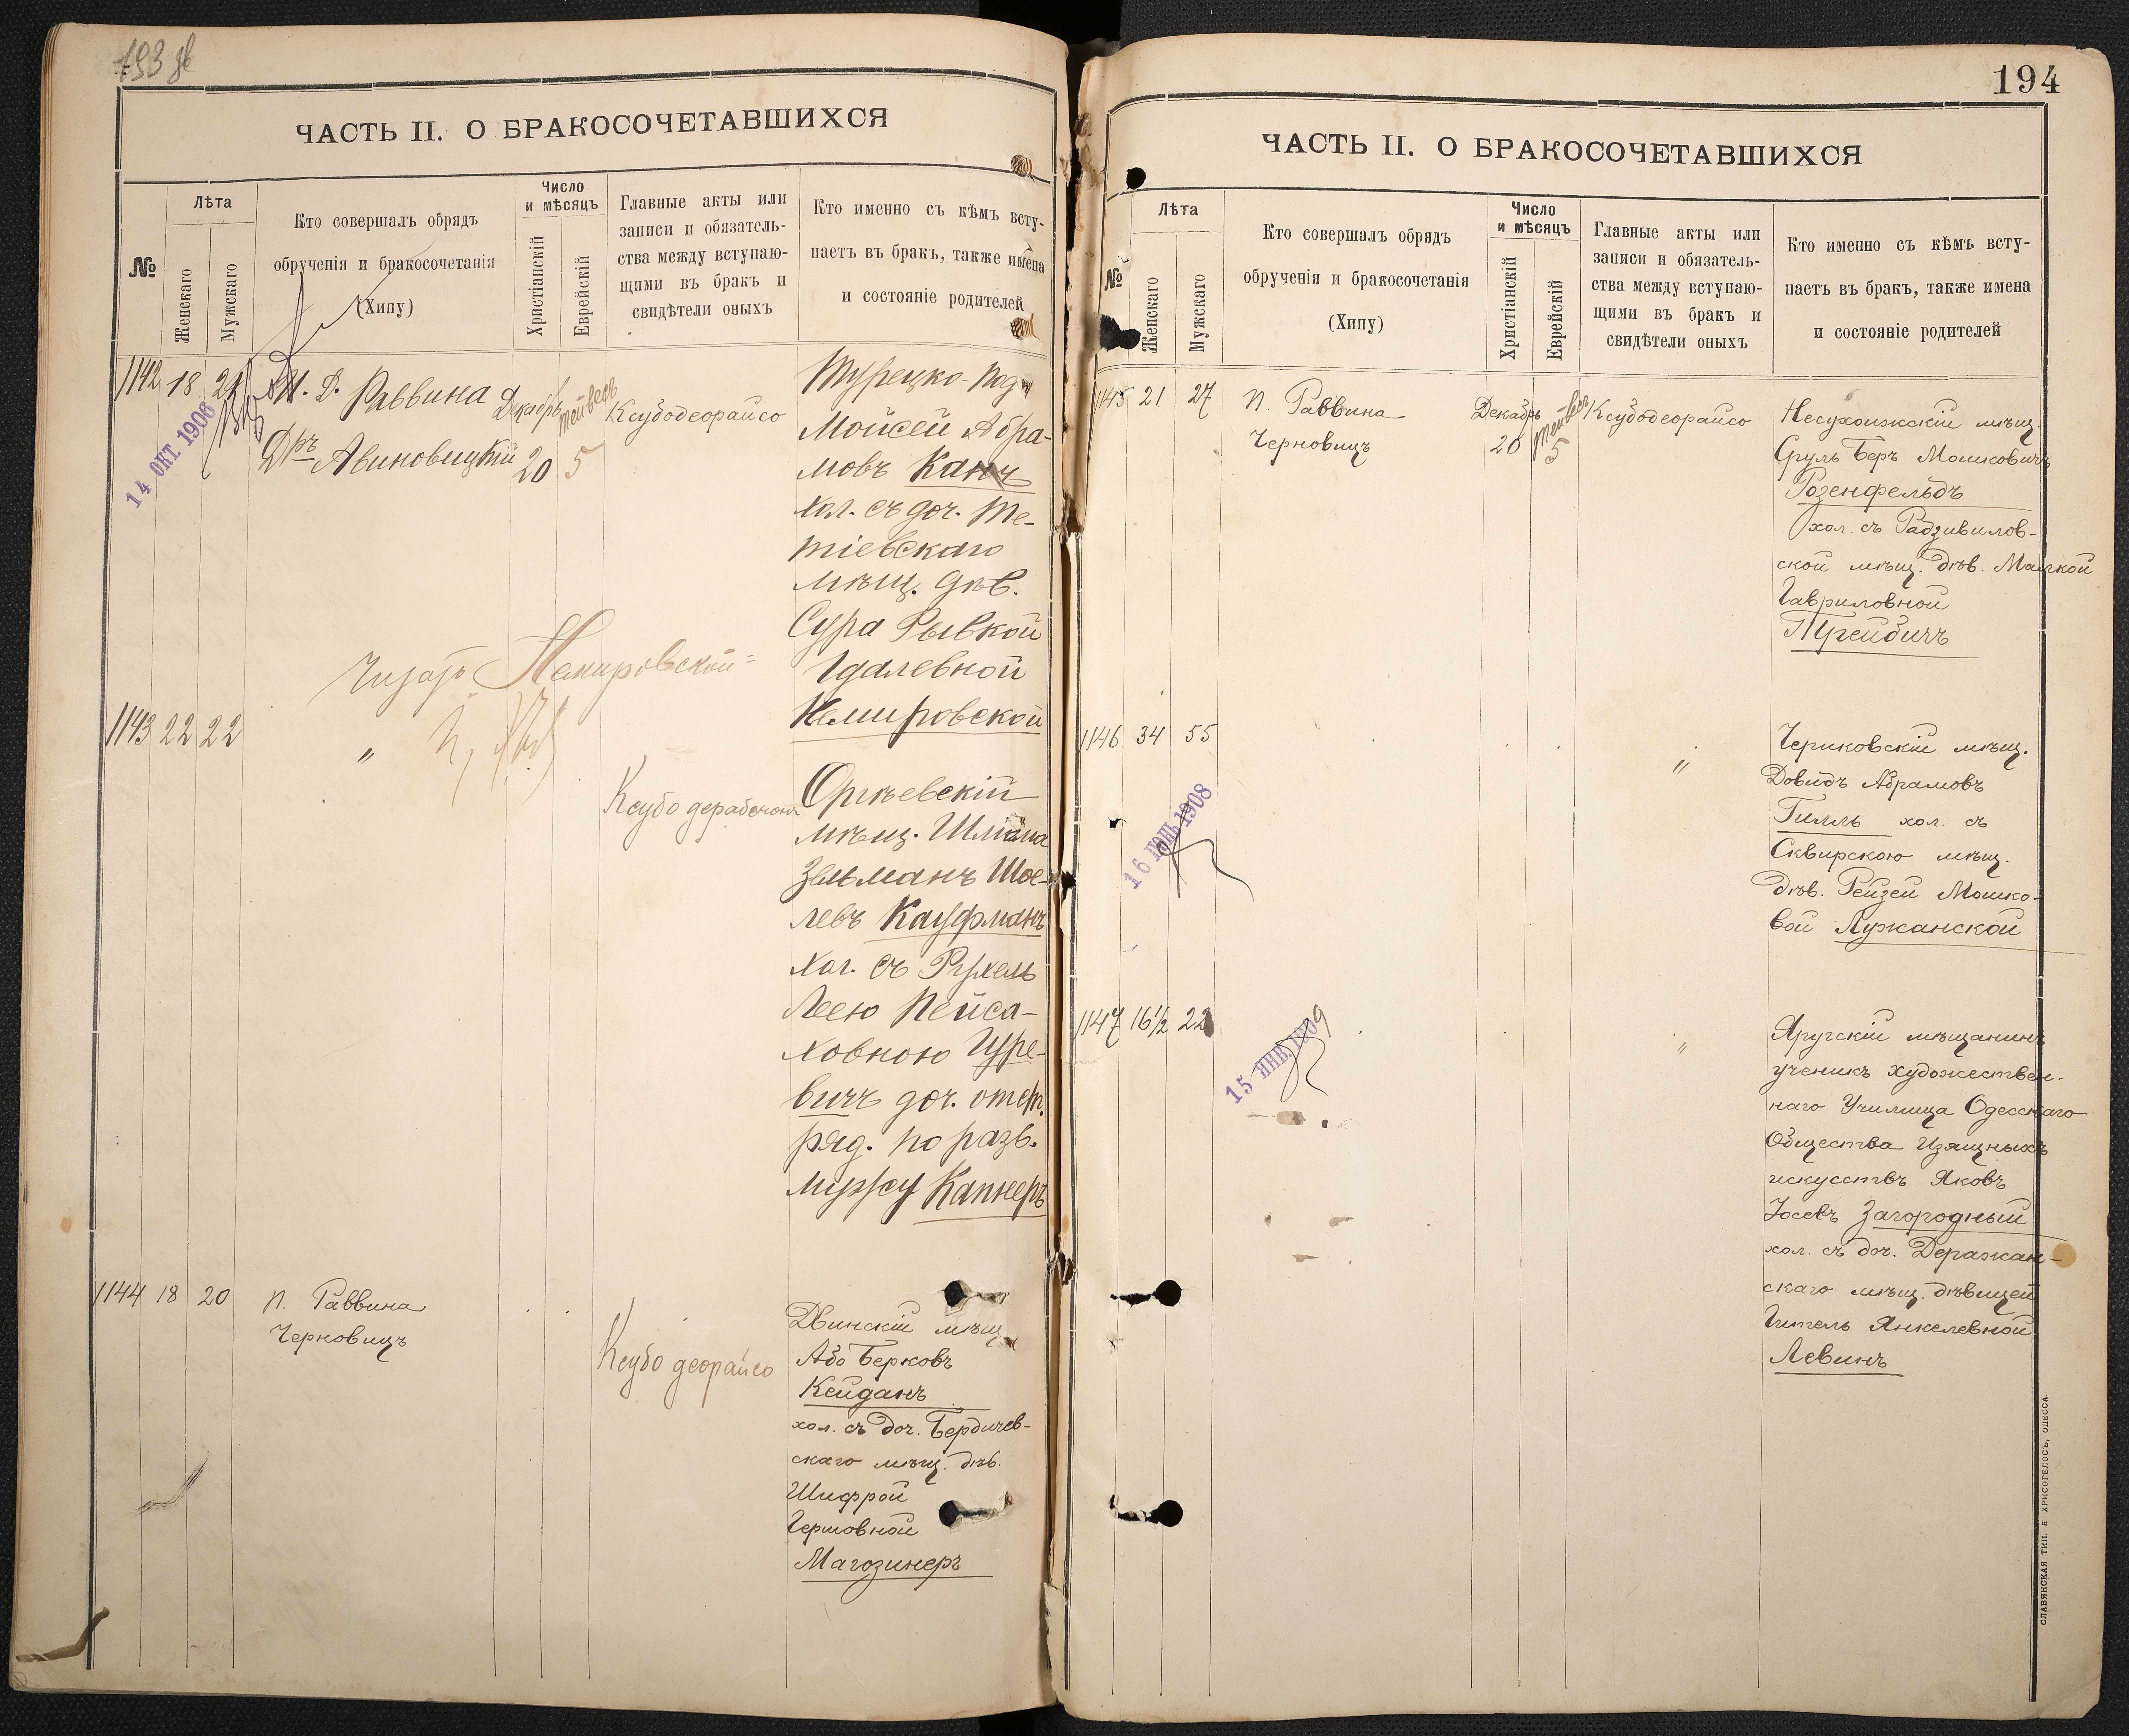 193 об
ЧАСТЬ II. О БРАКОСОЧЕТАВШИХСЯ
№
Лѣта
Женскаго
Мужскаго
Кто совершалъ обрядъ
обрученія и бракосочетанія
(Хипу)
Число
и мѣсяцъ
Христіанскій
Еврейскій
Главные акты или
записи и обязатель-
ства между вступаю-
щими въ бракъ и
свидѣтели оныхъ
Кто именно съ кѣмъ всту-
паетъ въ бракъ, также имена
и состояніе родителей
1142 18 21
14 ОКТ. 1906
И. д. Раввина
Дръ Авиновицкій
Декабрь
20
Тейвесъ
5
Ксубодеорайсо
Турецко-под.
Мойсей Абра-
мовъ Канъ
хол. съ доч. Те-
тіевскаго
мѣщ. дѣв.
Сура Рывкой
Удалевной
Немировской
Читать Немировской
1143 22 22
"
Ксубо дерабонон
Оргѣевскій
мѣщ. Шлёма
Зельманъ Шое-
левъ Кауфманъ
хол. съ Рухель
Леею Пейса-
ховною Гуре-
вичъ доч. отст.
ряд. по разв.
мужу Капнеръ
1144 18 20
П. Раввина
Черновицъ
Ксубо деорайсо
Двинскій мѣщ.
Або Берковъ
Кейданъ
хол. съ доч. Бердичев-
скаго мѣщ. дѣв.
Шифрой
Гершовной
Магозинеръ
194
ЧАСТЬ II. О БРАКОСОЧЕТАВШИХСЯ
№
Лѣта
Женскаго
Мужскаго
Кто совершалъ обрядъ
обрученія и бракосочетанія
(Хипу)
Число
и мѣсяцъ
Христіанскій
Еврейскій
Главные акты или
записи и обязатель-
ства между вступаю-
щими въ бракъ и
свидѣтели оныхъ
Кто именно съ кѣмъ всту-
паетъ въ бракъ, также имена
и состояніе родителей
1145 21 27
П. Раввина
Черновицъ
Декабрь
20
Тейвесъ
5
Ксубодеорайсо
Несухоижскій мѣщ.
Сруль Беръ Мошковичъ
Розенфельдъ
хол. съ Радзивилов-
ской мѣщ. дѣв. Малкой
Гавриловной
Трейбичъ
1146 34 55
16 ІЮНЬ 1908
"
Чериковскій мѣщ.
Довидъ Абрамовъ
Гилль хол. съ
Сквирскою мѣщ.
дѣв. Рейзей Мошко-
вой Лужанской
1147 16½ 22
15 ЯНВ. 1909
"
Яругскій мѣщанинъ
ученикъ художествен-
наго Училища Одесскаго
Общества Изящныхъ
искусствъ Яковъ
Іосевъ Загородный
хол. съ доч. Деражан-
скаго мѣщ. дѣвицей
Гитель Янкелевной
Левинъ
СЛАВЯНСКАЯ ТИП. Е ХРИСОГЕЛОСЪ, ОДЕССА